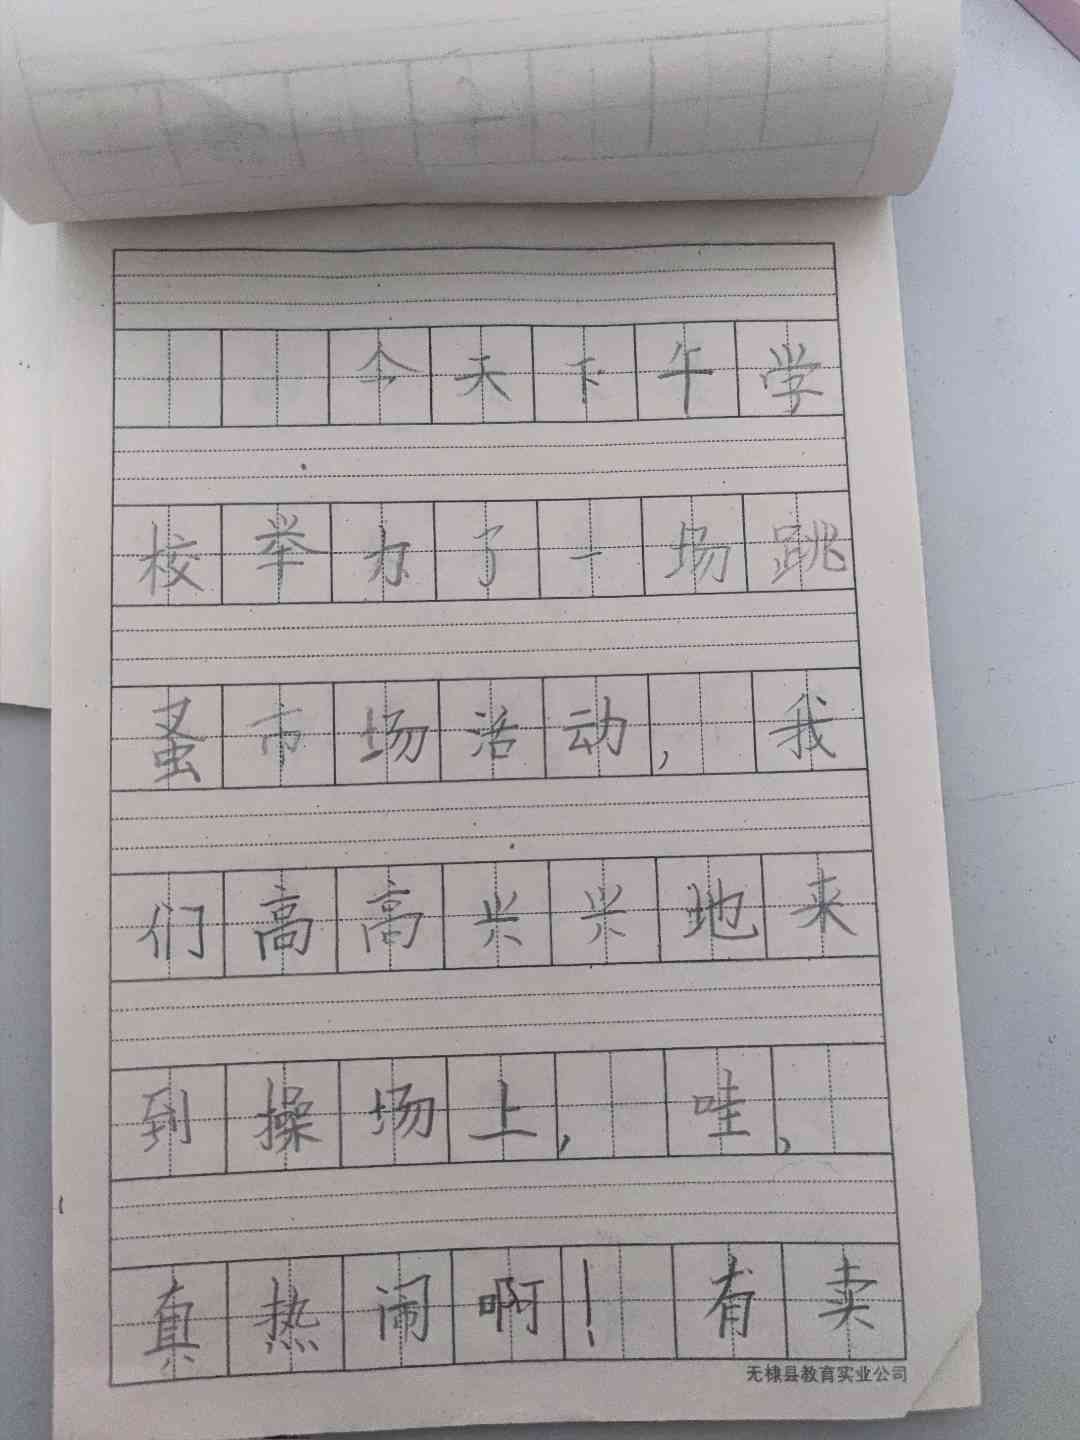 今天下午学
校举办了一场跳
蚤市场活动,我
们高高兴兴地来
到操场上,哇,
真热闹啊!有卖
无棣县教育实业公司